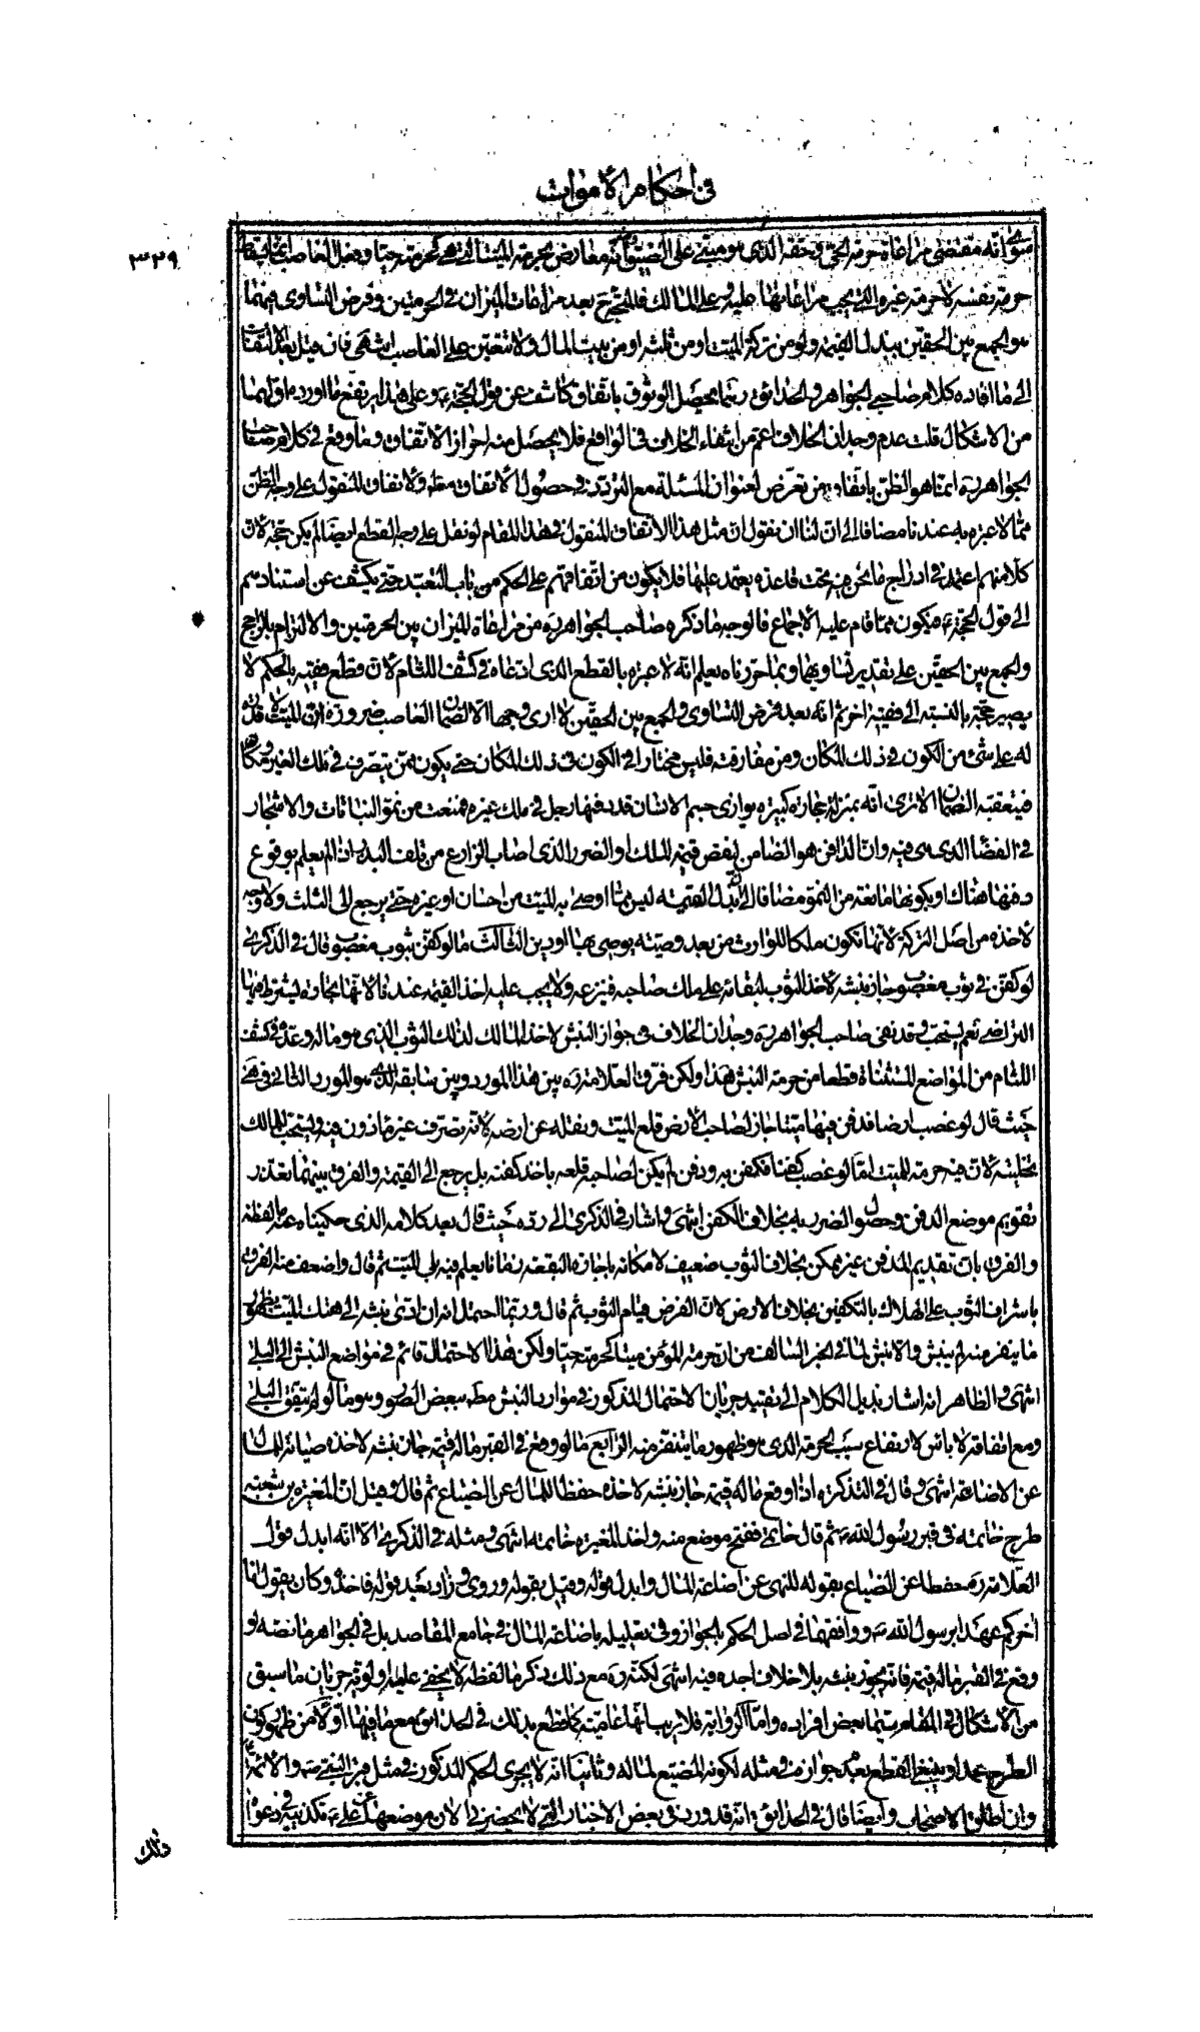 في احكام الأموات
٣٣٩
سوى انه مقتضى مراعاة حرمة الحي وحقه الذي هو مبني على الضيق وانه معارض بحرمة الميت التي هي كحرمته حيا وفعل الغاصب انما يسقط
حرمة نفسه لا حرمة غيره التي يجب مراعاتها عليه وعلى المالك فالمتجه ح بعد مراعات الميزان في الحرمتين وفرض التساوي فيهما
هو الجمع بين الحقين ببذل القيمة ولو من تركة الميت او من ثلثه او من بيت المال ولا تتعين على الغاصب انتهى فان قيل بعد الالتفات
الى ما افاده كلام صاحبي الجواهر والحدائق ربما يحصل الوثوق باتفاق كاشف عن قول الحجة ع وعلى هذا يرتفع ما اورد على قولهما
من الاشكال قلت عدم وجدان الخلاف اعم من انتفاء الخلاف في الواقع فلا يحصل منه احراز الاتفاق وما وقع في كلام صاحب
الجواهر ره انما هو الظن باتفاق من تعرض لعنوان المسئلة مع التردد في حصول الاتفاق مطلقا والاتفاق المنقول على وجه الظن
مما لا عبرة به عندنا مضافا الى ان لنا ان نقول ان مثل هذا الاتفاق المنقول في هذا المقام لو نقل على وجه القطع ايضا لم يكن حجة لان
كلا منهم اعتمد في ادراج ما نحن فيه تحت قاعدة يعتمد عليها فلا يكون من اتفاقهم على الحكم من باب التعبد حتى يكشف عن استنادهم
الى قول الحجة ع فيكون مما قام عليه الاجماع فالوجه ما ذكره صاحب الجواهر ره من مراعاة الميزان بين الحرمتين والالتزام بالراجح
والجمع بين الحقين على تقدير تساويهما وبما حررناه يعلم انه لا عبرة بالقطع الذي ادعاه في كشف اللثام لان قطع فقيه بالحكم لا
يصير حجة بالنسبة الى فقيه اخر ثم انه بعد فرض التساوي والجمع بين الحقين لا ارى وجها الا لضمان الغاصب ضرورة ان الميت لا قدرة
له على شئ من الكون في ذلك المكان ومن مفارقته فليس مختارا في الكون في ذلك المكان حتى يكون ممن يتصرف في ملك الغير ومكانه
فيتعقبه الضمان الا ترى انه بمنزلة حجارة كبيرة يوازي جسم الانسان قد دفنها رجل في ملك غيره فمنعت من نمو النباتات والاشجار
في الفضاء الذي هي فيه وان الدافن هو الضامن لنقص قيمة الملك او الضرر الذي اصاب الزارع من تلف البذر اذا لم يعلم بوقوع
دفنها هناك او بكونها مانعة من النمو مضافا الى ان بذل القيمة ليس مما اوصى به الميت من احسان او غيره حتى يرجع الى الثلث ولا وجه
لاخذه من اصل التركة لانها تكون ملكا للوارث من بعد وصية يوصى بها او دين الثالث ما لو كفن بثوب مغصوب قال في الذكرى
لو كفن في ثوب مغصوب جاز نبشه لاخذ الثوب لبقائه على ملك صاحبه فينزعه ولا يجب عليه اخذ القيمة عندنا لانها تجارة يشترط فيها
التراضي نعم يستحب وقد نفى صاحب الجواهر ره وجدان الخلاف في جواز النبش لاخذ المالك لذلك الثوب الذي هو ماله وعده في كشف
اللثام من المواضع المستثناة قطعا من حرمة النبش هذا ولكن فرق العلامة ره بين هذا المورد وبين سابقه الذي هو المورد الثاني في هي
حيث قال لو غصب ارضا فدفن فيها ميتا جاز لصاحب الارض قلع الميت ونقله عن ارضه لانه تصرف غير مأذون فيه ويستحب للمالك
تخليته لان فيه حرمة للميت اما لو غصب كفنا فكفن به ودفن لم يكن لصاحبه قلعه باخذ كفنه بل يرجع الى القيمة والفرق بينهما تعذر
تقويم موضع الدفن وحصول الضرر به بخلاف الكفن انتهى واشار في الذكرى الى رده حيث قال بعد كلامه الذي حكيناه عنه ما لفظه
والفرق بان تقديم المدفن غير ممكن بخلاف الثوب ضعيف لامكانه باجارة البقعة زمانا يعلم فيه بلى الميت ثم قال واضعف منه الفرق
باشراف الثوب على الهلاك بالتكفين بخلاف الارض لان الفرض قيام الثوب ثم قال وربما احتمل انه ان ادى نبشه الى هتك الميت بظهور
ما ينفر منه لم ينبش والا نبش لما في الخبر السالف من ان حرمة المؤمن ميتا كحرمته حيا ولكن هذا الاحتمال قائم في مواضع النبش الى البلى
انتهى والظاهر انه اشار بذيل الكلام الى تقييد جريان الاحتمال المذكور في موارد النبش مطلقا ببعض الصور وهو ما لو لم يتيقن البلى
ومع اتفاقه لا باس لارتفاع سبب الحرمة الذي هو ظهور ما يتنفر منه الرابع ما لو وقع في القبر ماله قيمة جاز نبشه لاخذه صيانة للمال
عن الاضاعة انتهى وقال في التذكرة اذا وقع ماله قيمة جاز نبشه لاخذه حفظا للمال عن الضياع ثم قال وقيل ان المغيرة بن شعبة
طرح خاتمه في قبر رسول الله ص ثم قال خاتمي ففتح موضع منه واخذ المغيرة خاتمه انتهى ومثله في الذكرى الا انه ابدل قول
العلامة ره حفظا عن الضياع بقوله للنهي عن اضاعة المال وابدل قوله وقيل بقوله وروى وزاد بعد قوله فاخذه وكان يقول انا
اخركم عهدا برسول الله ص ووافقهما في اصل الحكم بالجواز وفي تعليله باضاعة المال في جامع المقاصد بل في الجواهر ما نصه لو
وقع في القبر ماله قيمة فانه يجوز نبشه بلا خلاف اجده فيه انتهى لكنه ره مع ذلك ذكر ما لفظه لا يخفى عليك اولوية جريان ما سبق
من الاشكال في المقام سيما بعض افراده واما الرواية فلا ريب انها عامية كما قطع بذلك في الحدائق مع ما فيها اولا من ظهور كون
الطرح عمدا وينبغي القطع بعدم جوازه في مثله لكونه المضيع لماله وثانيا انه لا يجري الحكم المذكور في مثل قبر النبي ص والائمة ع
وان اطلق الاصحاب وايضا قال في الحدائق انه قد ورد في بعض الاخبار التي لا يحضرني الان موضعها عن علي ع تكذيبه في دعواه
ذلك